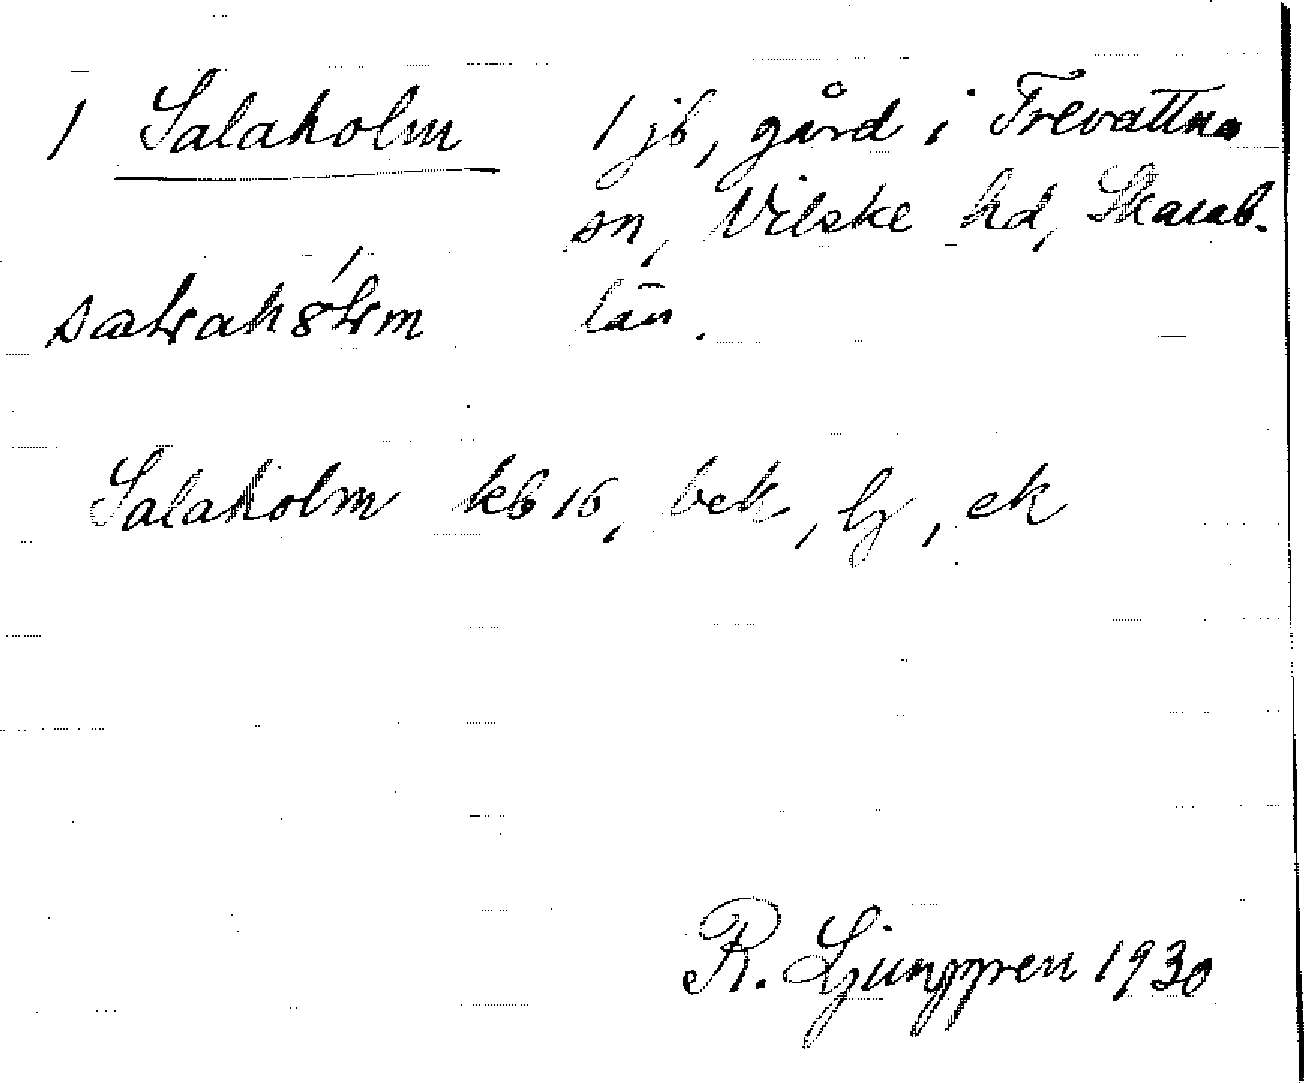 1 Salaholm 1 jb, gård i Trevattna
sn, Vilske hd, Skarab.
län.
Salaholm kb 16, bek, lj, ek
R. Ljunggren 1930